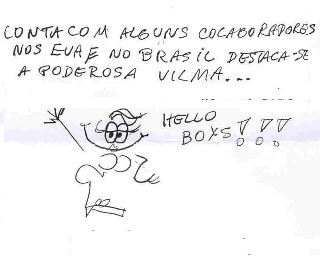 CONTA COM ALGUNS COLABORADORES
NOS EUA E NO BRASIL DESTACA-SE
A PODEROSA VILMA...
HELLO
BOYS!!!